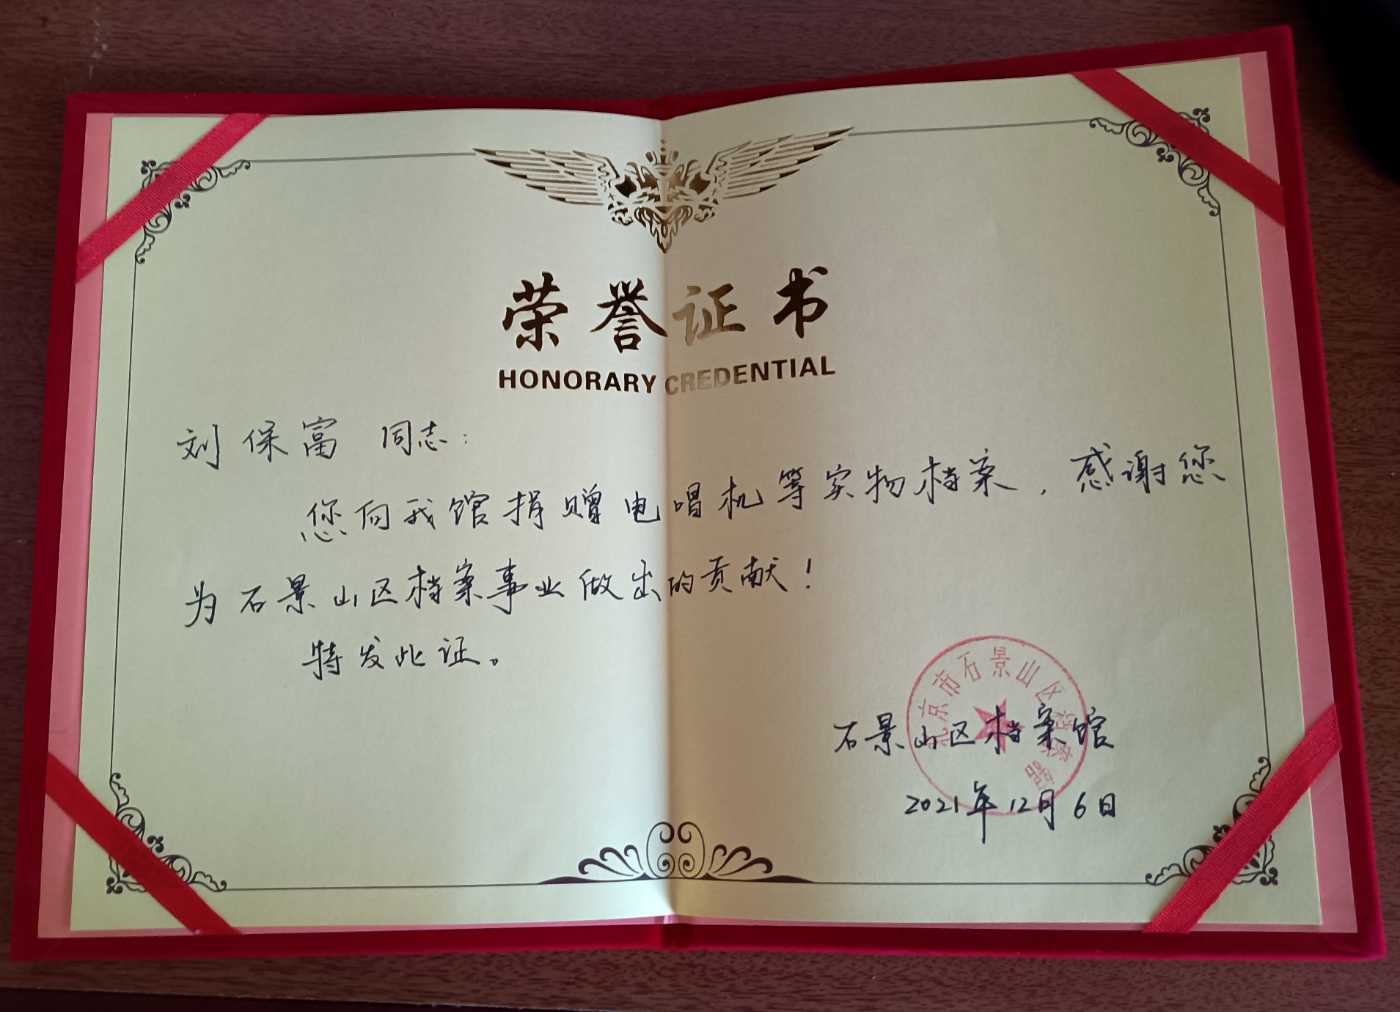 荣誉证书
HONORARY CREDENTIAL
刘保富 同志：
您向我馆捐赠电唱机等实物档案，感谢您
为石景山区档案事业做出的贡献！
特发此证。
北京市石景山区档案馆
石景山区档案馆
2021年12月6日